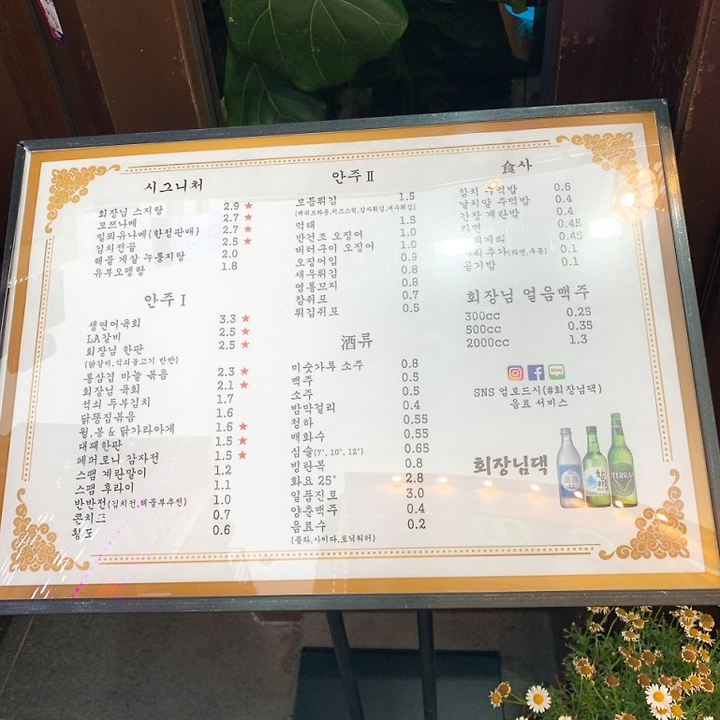 시그니처
회장님 스지탕 2.9 ★
모쯔나베 2.7 ★
밀푀유나베(한정판매) 2.7 ★
김치전골 2.5 ★
해물 게살 누룽지탕 2.0
유부오뎅탕 1.8
안주 I
생연어육회 3.3 ★
LA갈비 2.5 ★
회장님 한판 2.5 ★
(닭갈비,석쇠불고기 반반)
통삼겹 마늘 볶음 2.3 ★
회장님 육회 2.1 ★
석쇠 두부김치 1.7
닭똥집볶음 1.6
윙,봉 & 닭가라아게 1.6 ★
대패한판 1.5 ★
페퍼로니 감자전 1.5 ★
스팸 계란말이 1.2
스팸 후라이 1.1
반반전(김치전,해물부추전) 1.0
콘치즈 0.7
황도 0.6
안주 II
모듬튀김 1.5
먹태 1.5
반건조 오징어 1.0
버터구이 오징어 1.0
오징어입 0.9
새우튀김 0.8
염통꼬지 0.8
참쥐포 0.7
튀김쥐포 0.5
酒류
미숫가루 소주 0.8
맥주 0.5
소주 0.5
밤막걸리 0.4
청하 0.55
매화수 0.55
심술(7°, 10°, 12°) 0.65
빙탄복 0.8
화요 25° 2.8
일품진로 3.0
양촌맥주 0.4
음료수 0.2
(콜라,사이다,토닉워터)
食사
참치 주먹밥 0.6
날치알 주먹밥 0.4
간장 계란밥 0.4
라면 0.45
0.45
추가(라면,우동) 0.1
공기밥 0.1
회장님 얼음맥주
300cc 0.25
500cc 0.35
2000cc 1.3
blog
SNS 업로드시(#회장님댁)
음료 서비스
회장님댁
참이슬
TERRA